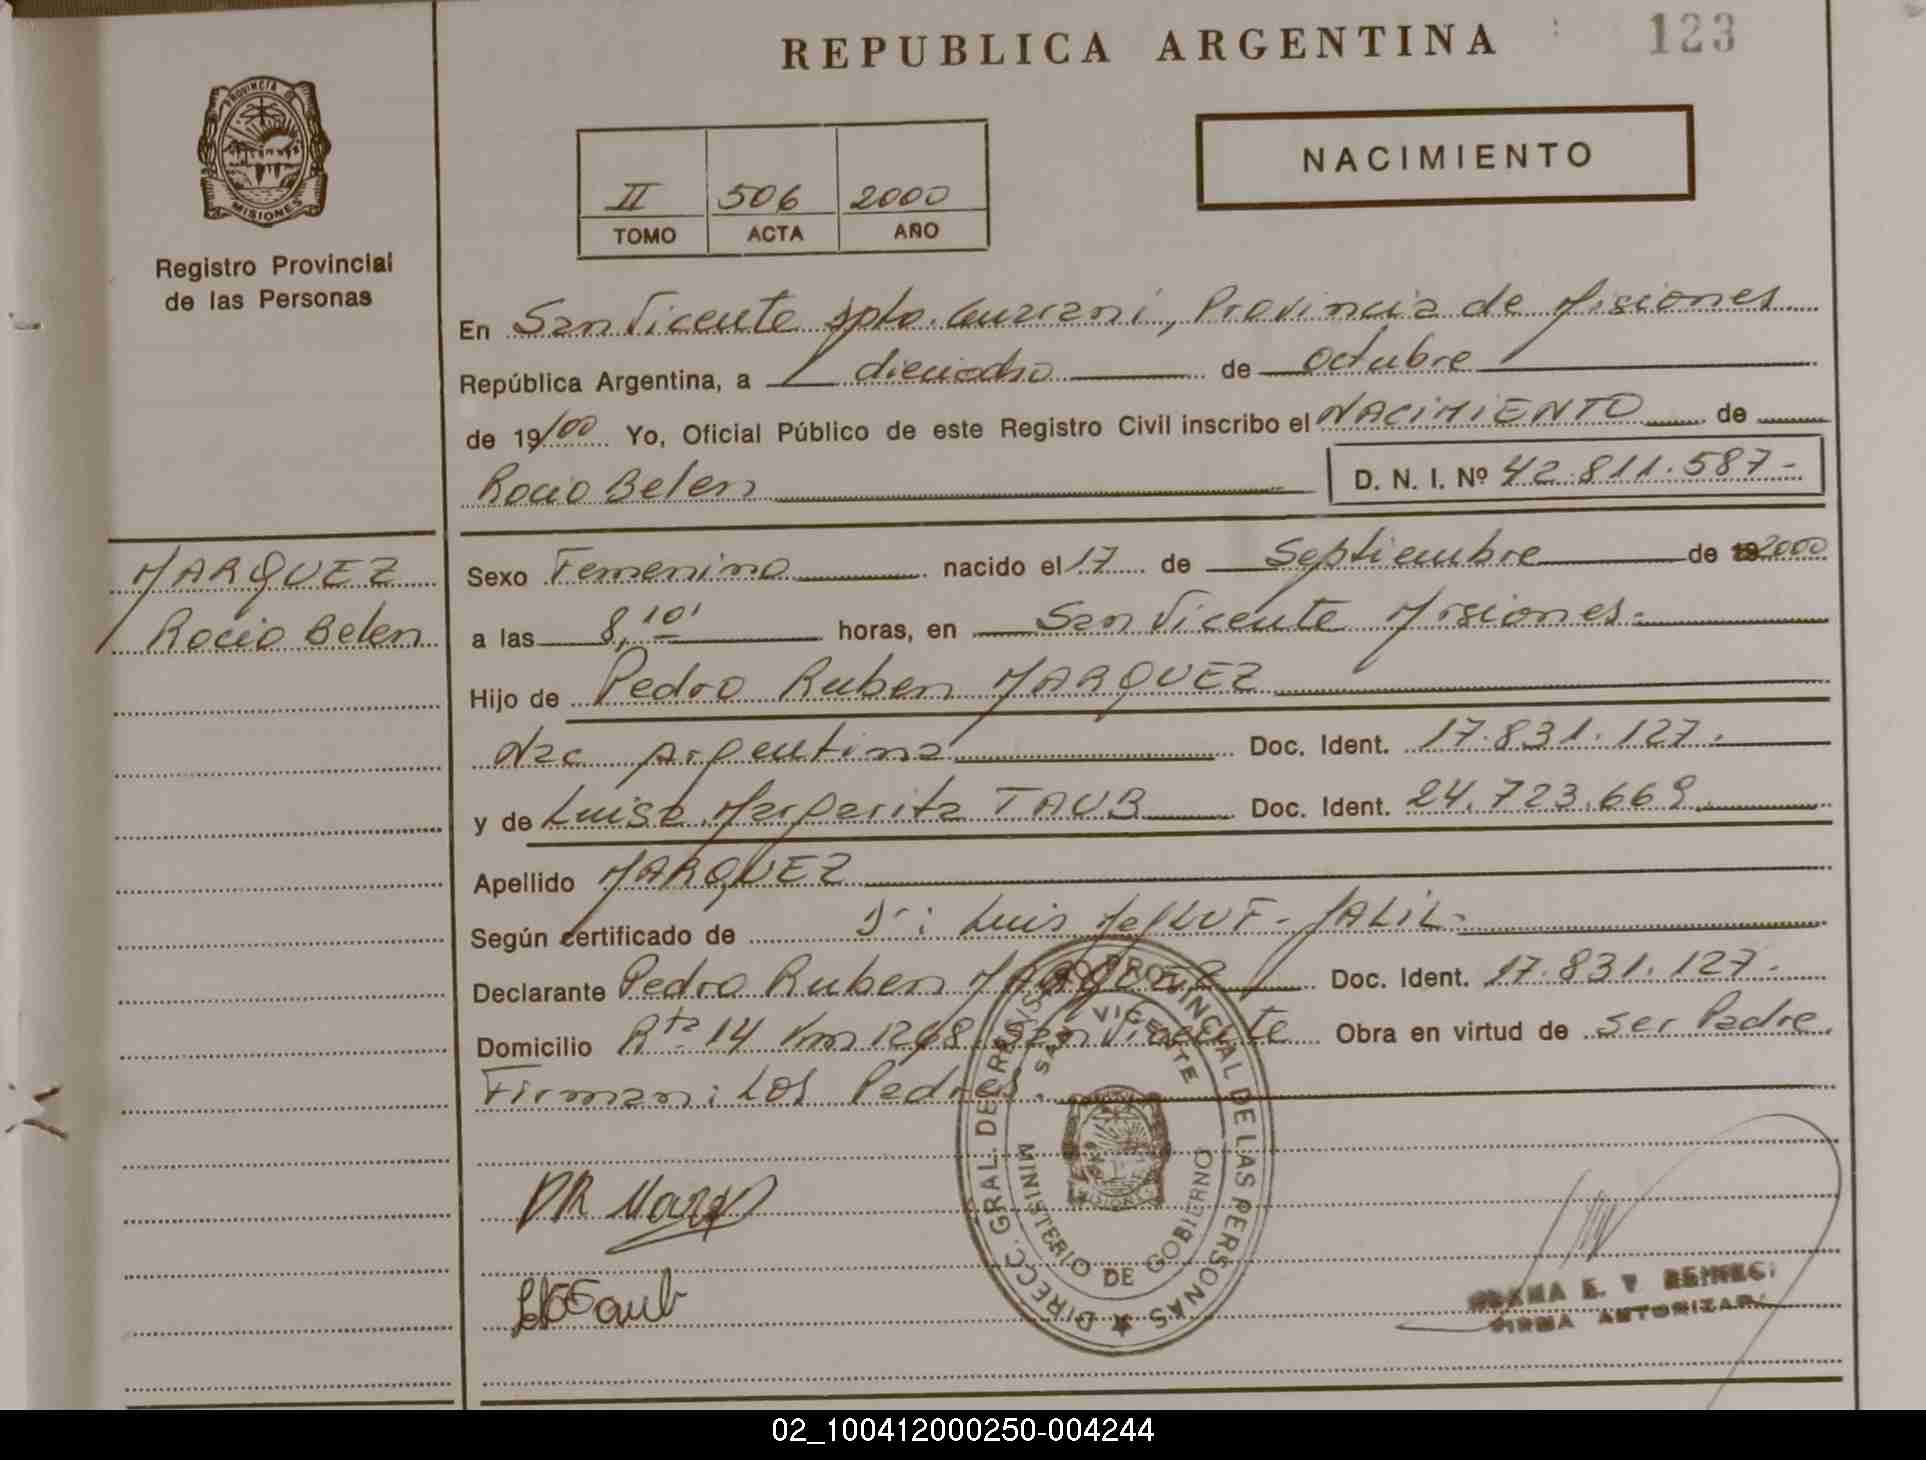 REPUBLICA ARGENTINA
123
PROVINCIA DE
MISIONES
Registro Provincial
de las Personas
II 506 2000
TOMO ACTA AÑO
NACIMIENTO
En San Vicente Dpto. Guarani, Provincia de Misiones
República Argentina, a dieciocho de Octubre
de 19/00 Yo, Oficial Público de este Registro Civil inscribo el NACIMIENTO de
Rocio Belen D. N. I. Nº 42.811.587-
MARQUEZ
Rocio Belen
Sexo Femenino nacido el 17 de Septiembre de 2000
a las 8,10' horas, en San Vicente Misiones-
Hijo de Pedro Ruben MARQUEZ
Nac Argentina Doc. Ident. 17.831.127.
y de Luisa Margarita TAUB Doc. Ident. 24.723.669
Apellido MARQUEZ
Según certificado de Dr: Luis JALIL-
Declarante Pedro Ruben MARQUEZ Doc. Ident. 17.831.127-
Domicilio Rta 14 Km 1268 San Vicente Obra en virtud de ser Padre.
Firman: Los Padres.
DIRECC. GRAL. DE REGISTRO PROVINCIAL DE LAS PERSONAS
SAN VICENTE
MISIONES
MINISTERIO DE GOBIERNO
PR Marq
LM Taub
E. V
FIRMA
02_100412000250-004244